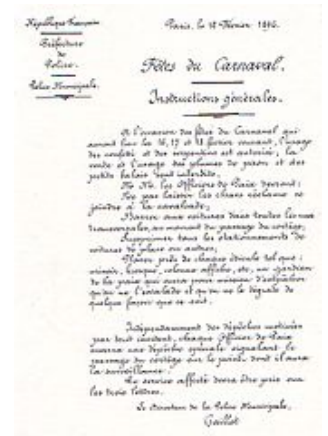 République Française
Paris, le 12 Février 1896.
Préfecture
de
Police.
Police Municipale.
Fêtes du Carnaval.
Instructions générales.
A l'occasion des fêtes du Carnaval qui
auront lieu les 16, 17 et 18 février courant, l'usage
des confetti et des serpentins est autorisé; la
vente et l'usage des plumes de paon et des
petits balais sont interdits.
M. M. les Officiers de Paix devront:
Ne pas laisser les chars réclame se
joindre à la cavalcade,
Barrer aux voitures dans toutes les rues
transversales, au moment du passage du cortège,
Supprimer tous les stationnements de
voitures de place ou autres;
Placer près de chaque édicule tel que:
urinoir, kiosque, colonne affiche, etc., un gardien
de la paix qui aura pour mission d'empêcher
qu'on ne l'escalade et qu'on ne le dégrade de
quelque façon que ce soit.
Indépendamment des dépêches motivées
par tout incident, chaque Officier de Paix
enverra une dépêche spéciale signalant le
passage du cortège sur le point dont il aura
la surveillance.
Le service affecté devra être pris sur
les trois lettres.
Le Directeur de la Police Municipale,
Gaillot